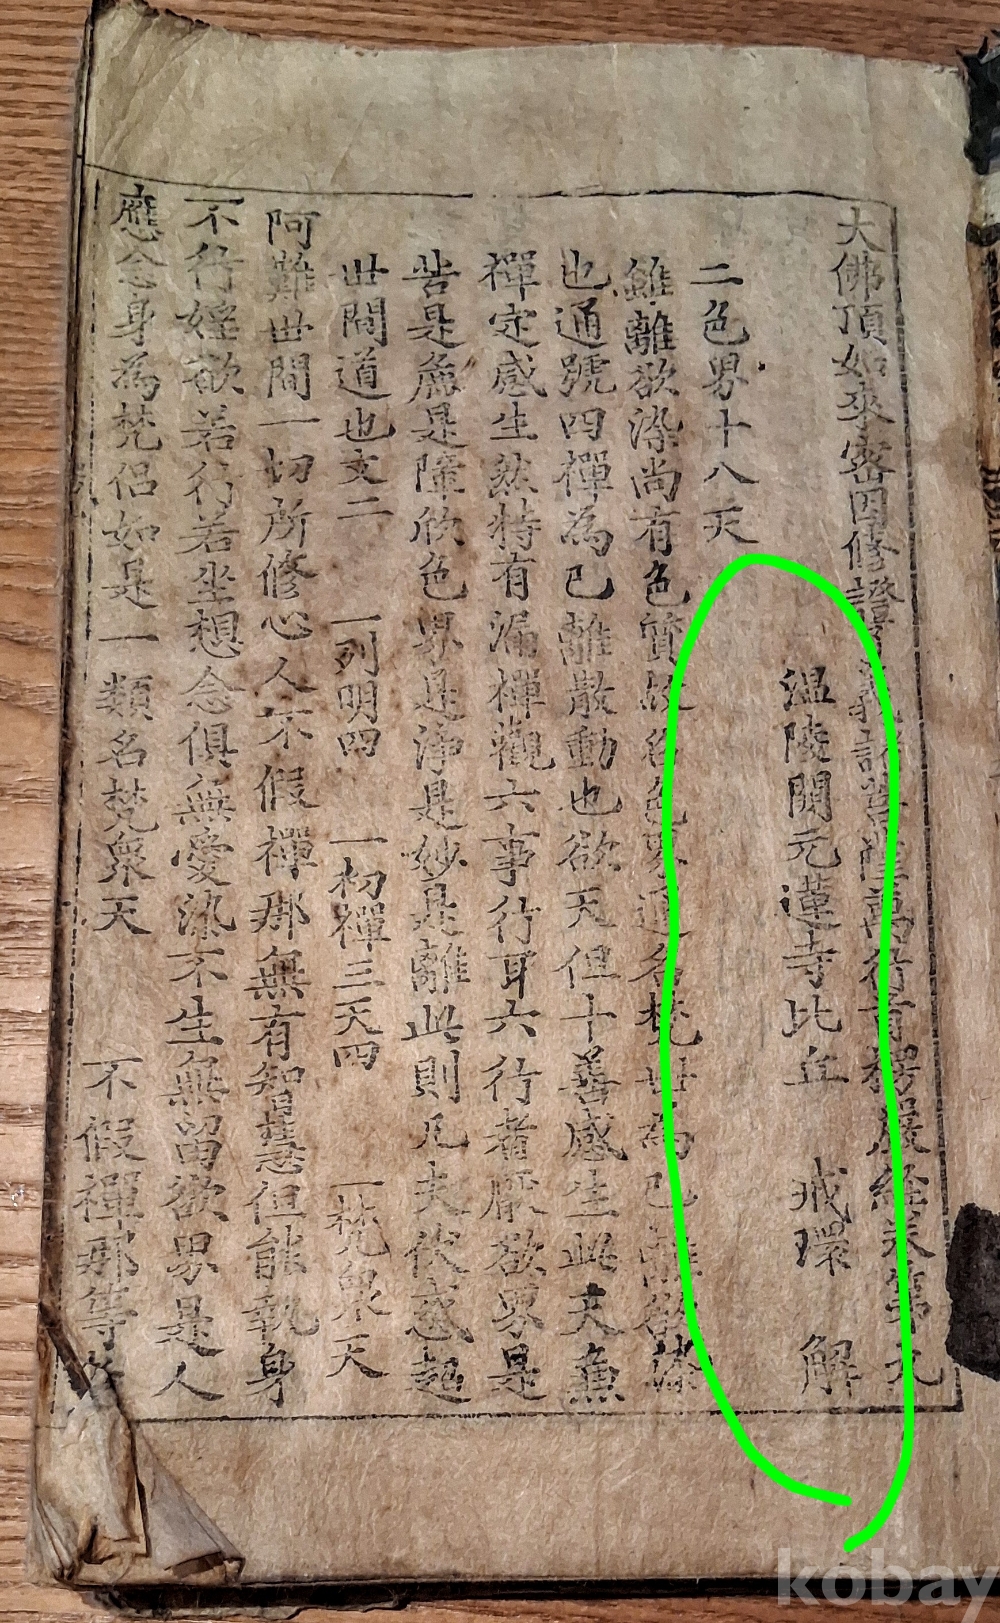 大佛頂如來密因修證了義諸菩薩萬行首楞嚴經卷第九
温陵開元蓮寺比丘 戒環 解
二色界十八天
雖離欲染尚有色質故名色界通名梵世為已離欲染
也通號四禪為已離散動也欲天但十善感生此天兼
禪定感生然特有漏禪觀六事行耳六行者厭欲界是
苦是麁是障欣色界是淨是妙是離此則凡夫伏惑超
世間道也文二 一列明四 一初禪三天四 一梵衆天
阿難世間一切所修心人不假禪那無有智慧但能執身
不行婬欲若行若坐想念俱無愛染不生無留欲界是人
應念身為梵侣如是一類名梵衆天 不假禪那等
kobay